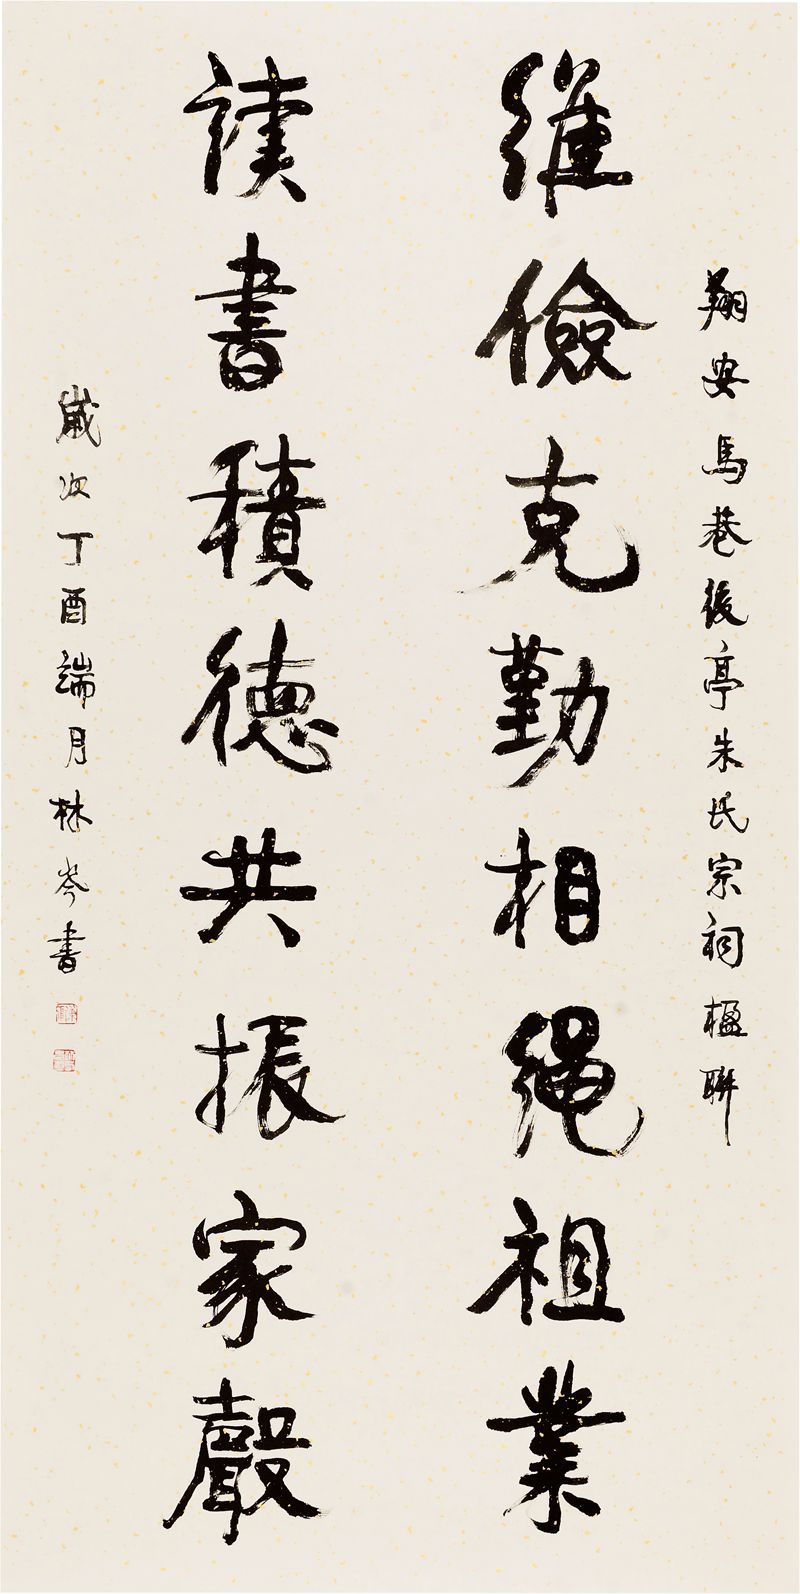 翔安馬巷後亭朱氏宗祠楹聯
維儉克勤相繩祖業
讀書積德共振家聲
歲次丁酉端月林岑書